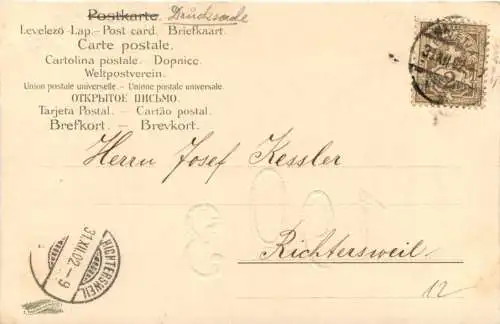 Postkarte. Drucksache
Levelező-Lap. - Post card. - Briefkaart.
Carte postale.
Cartolina postale. - Dopnice.
Weltpostverein.
Union postale universelle. - Unione postale universale.
ОТКРЫТОЕ ПИСЬМО.
Tarjeta Postal. - Cartão postal.
Brefkort. - Brevkort.
Herrn Josef Kessler
Richtersweil
12
31.XII.02.-9
RICHTERSWEIL